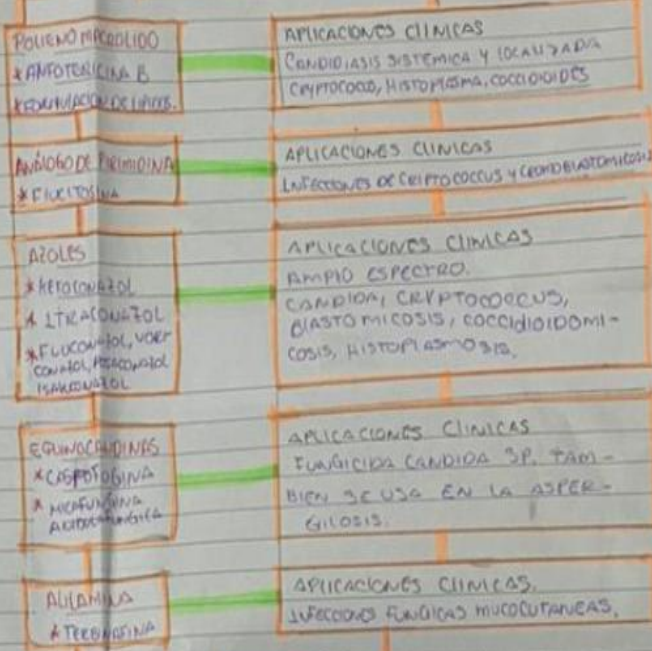 POLIENO MACROLIDO
* ANFOTERICINA B
* FORMULACION DE LIPIDOS.
APLICACIONES CLINICAS
CANDIDIASIS SISTEMICA Y LOCALIZADA
CRYPTOCOCO, HISTOPLASMA, COCCIDIOIDES
ANÁLOGO DE PIRIMIDINA
* FLUCITOSINA
APLICACIONES CLINICAS
INFECCIONES DE CRIPTOCOCCUS Y CROMOBLASTOMICOSIS
AZOLES
* KETOCONAZOL
* ITRACONAZOL
* FLUCONAZOL, VORI
CONAZOL, POSACONAZOL
ISAVUCONAZOL
APLICACIONES CLINICAS
AMPIO ESPECTRO.
CANDIDA, CRYPTOCOCCUS,
BLASTOMICOSIS, COCCIDIOIDOMI-
COSIS, HISTOPLASMOSIS.
EQUINOCANDINAS
* CASPOFOGINA
* MICAFUNGINA
APLICACIONES CLINICAS
FUNGICIDA CANDIDA SP. TAM-
BIEN SE USA EN LA ASPER-
GILOSIS.
ALILAMINA
* TERBINAFINA
APLICACIONES CLINICAS.
INFECCIONES FUNGICAS MUCOCUTANEAS.